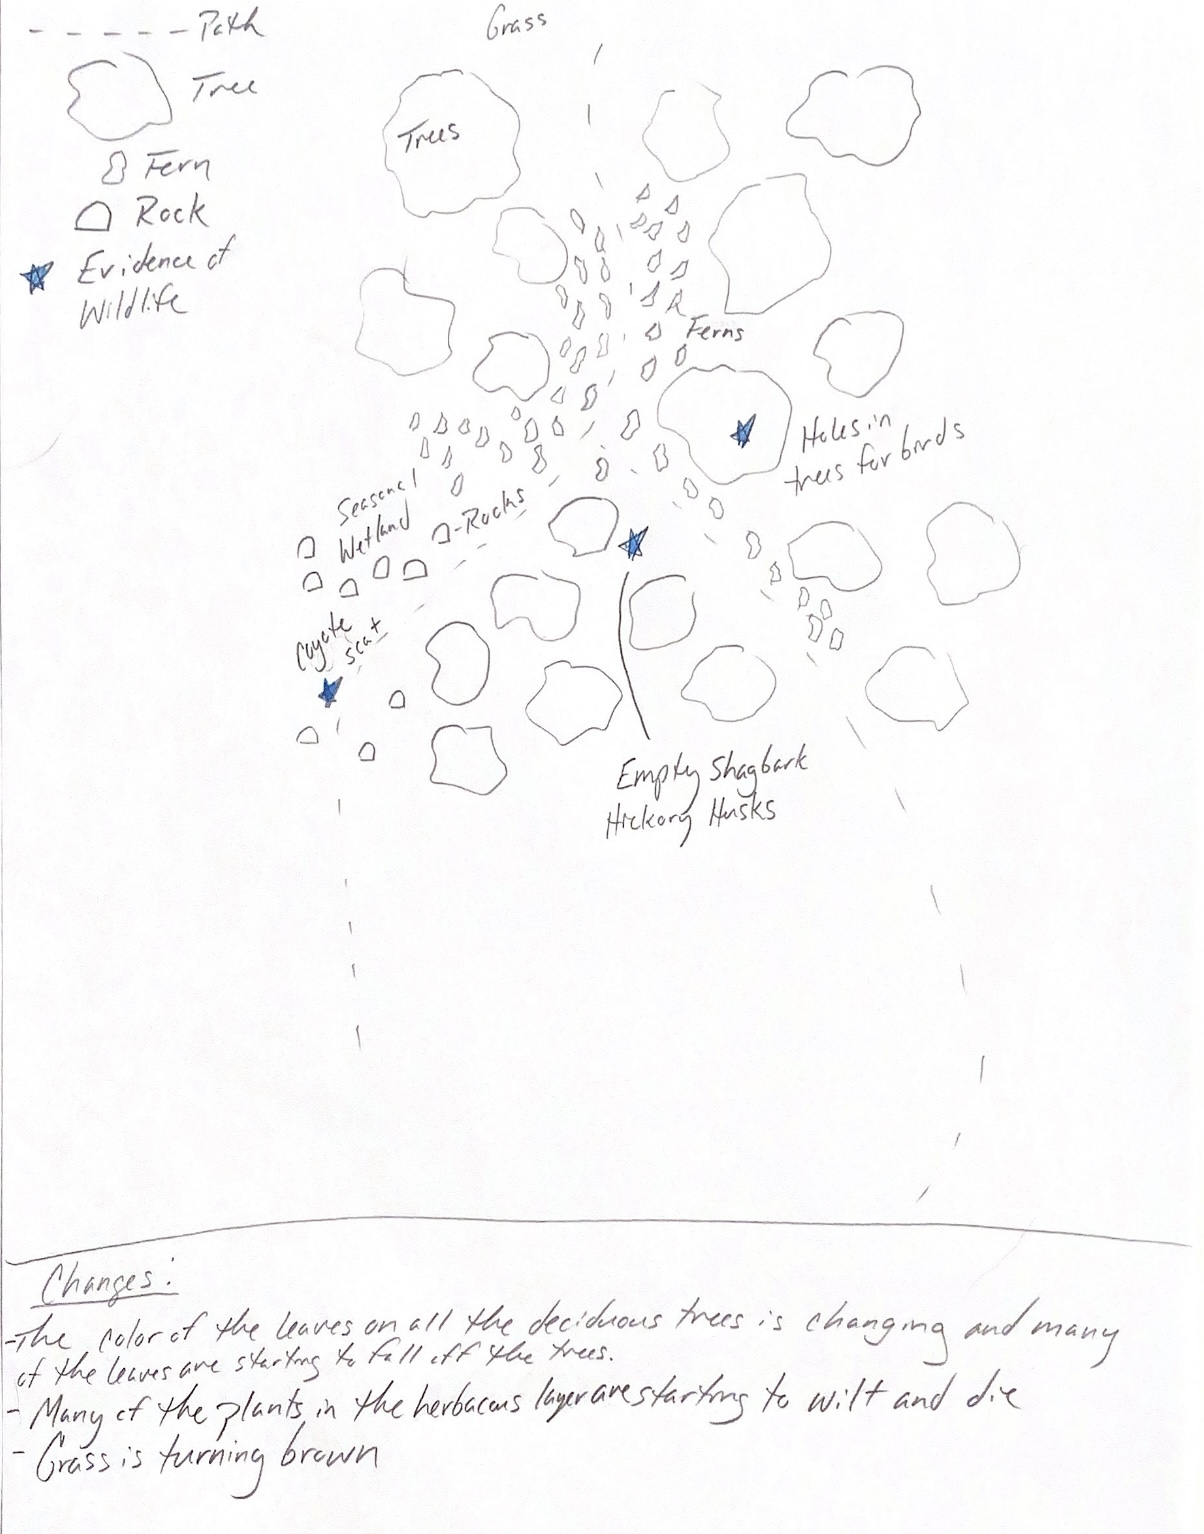 Path
Tree
Fern
Rock
Evidence of
Wildlife
Grass
Trees
Ferns
Holes in
trees for birds
Seasonal
Wetland
Rocks
Coyote
scat
Empty Shagbark
Hickory Husks
Changes:
-The color of the leaves on all the deciduous trees is changing and many
of the leaves are starting to fall off the trees.
- Many of the plants in the herbacous layer are starting to wilt and die
- Grass is turning brown